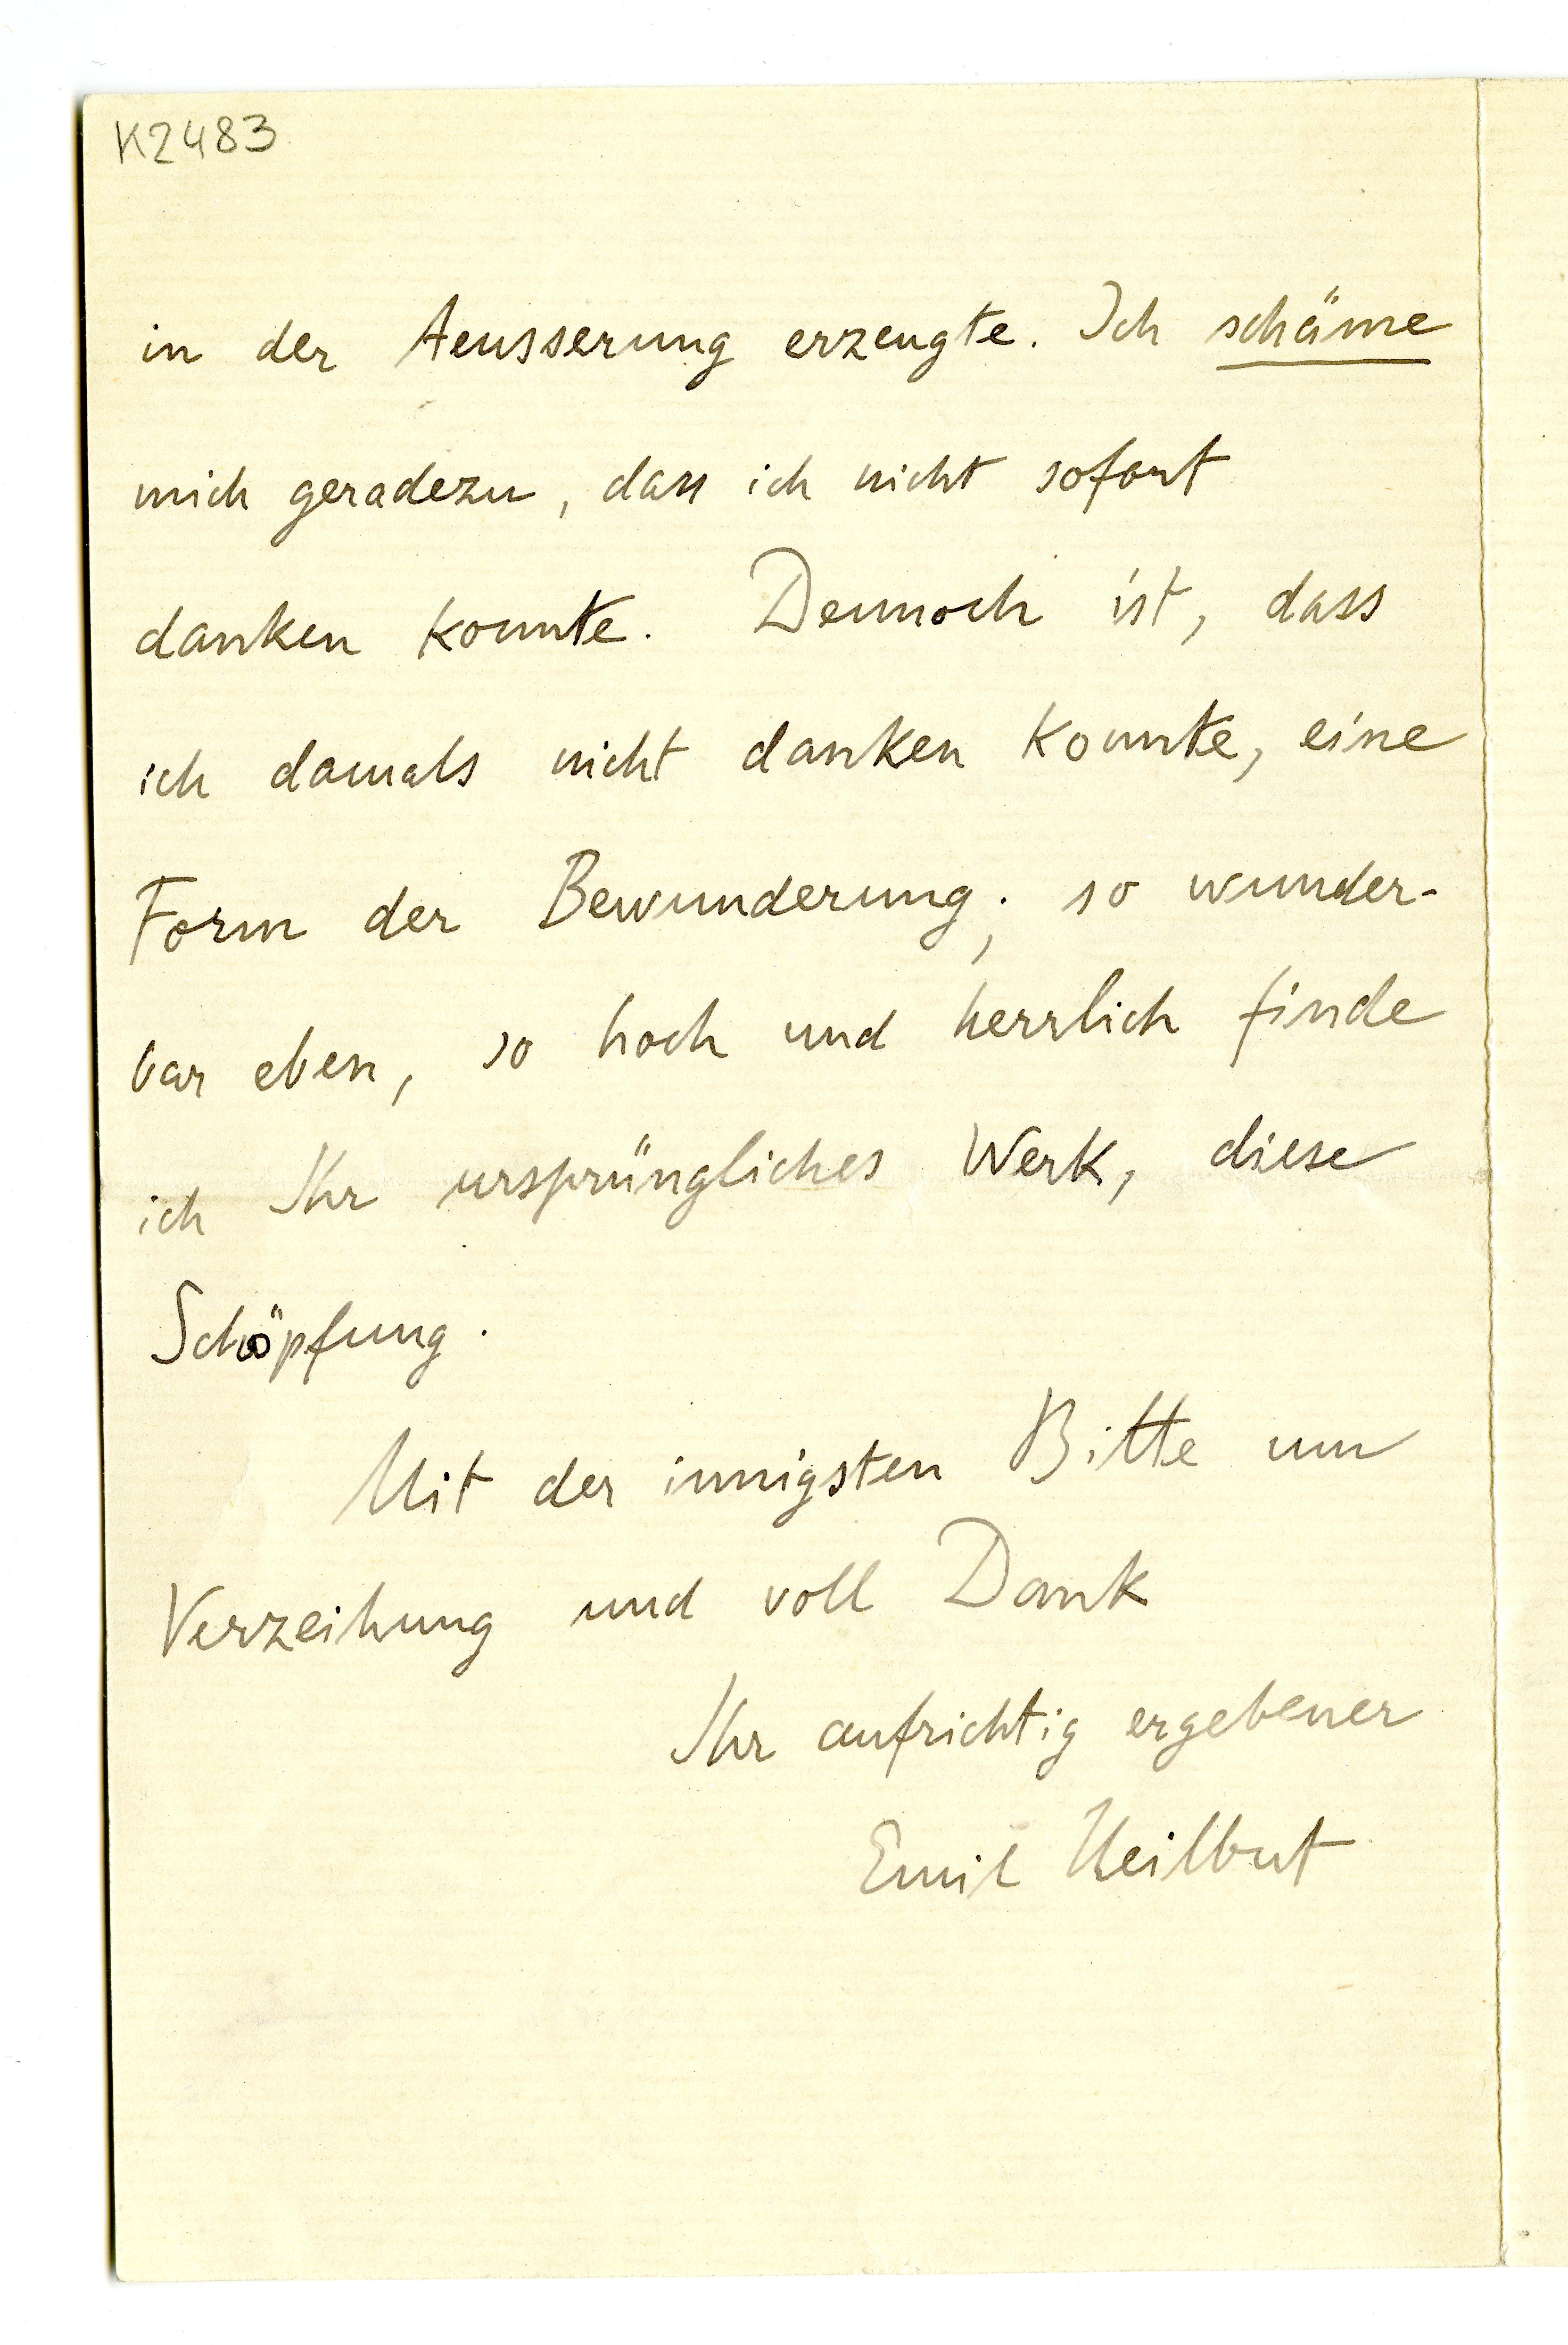 K2483
in der Aeusserung erzeugte. Ich schäme
mich geradezu, dass ich nicht sofort
danken konnte. Dennoch ist, dass
ich damals nicht danken konnte, eine
Form der Bewunderung; so wunder-
bar eben, so hoch und herrlich finde
ich Ihr ursprüngliches Werk, diese
Schöpfung.
Mit der innigsten Bitte um
Verzeihung und voll Dank
Ihr aufrichtig ergebener
Emil Heilbut